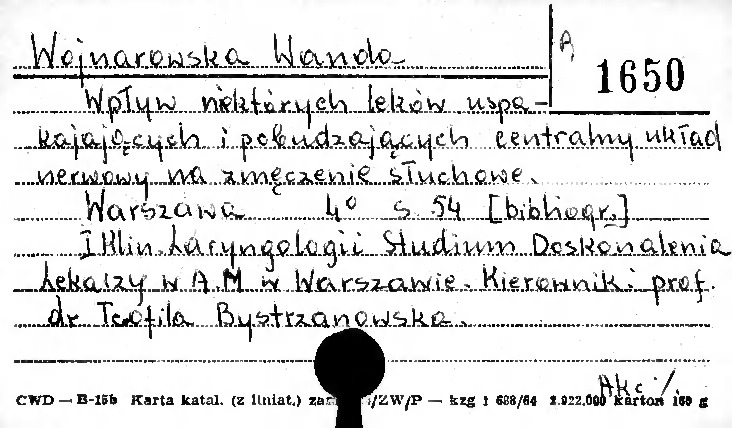 Wojnarowska Wanda
A
1650
Wpływ niektórych leków uspa-
kajających i pobudzających centralny układ
nerwowy na zmęczenie słuchowe.
Warszawa 4° s 54 [bibliogr.]
I Klin. Laryngologii Studium Doskonalenia
Lekarzy w A.M w Warszawie. Kierownik: prof.
dr Teofila Bystrzanowska.
Akc
CWD — B-15b Karta katal. (z liniat.) /ZW/P — kzg 1 688/64 2.922.000 karton 160 g